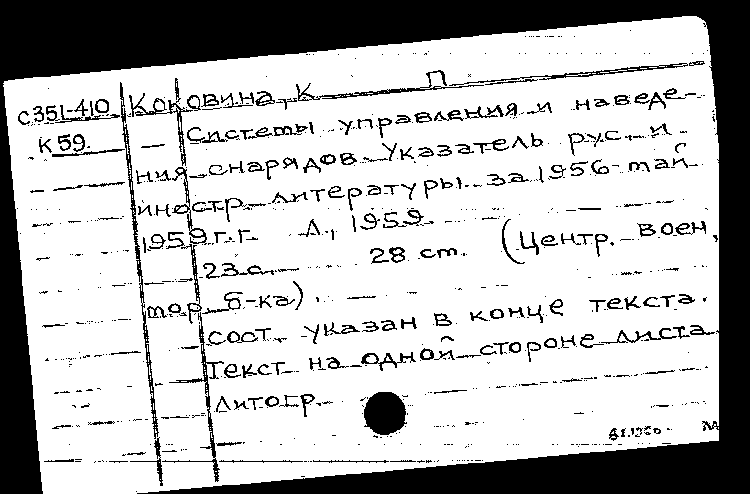 С351-410 Коковина, К П
К59. — Системы управления и наведе-
ния снарядов. Указатель рус. и
иностр. литературы за 1956-май
1959 г.г. Л., 1959.
23 с. 28 ст. (Центр. воен.
мор. б-ка).
Сост. указан в конце текста.
Текст на одной стороне листа
Литогр.